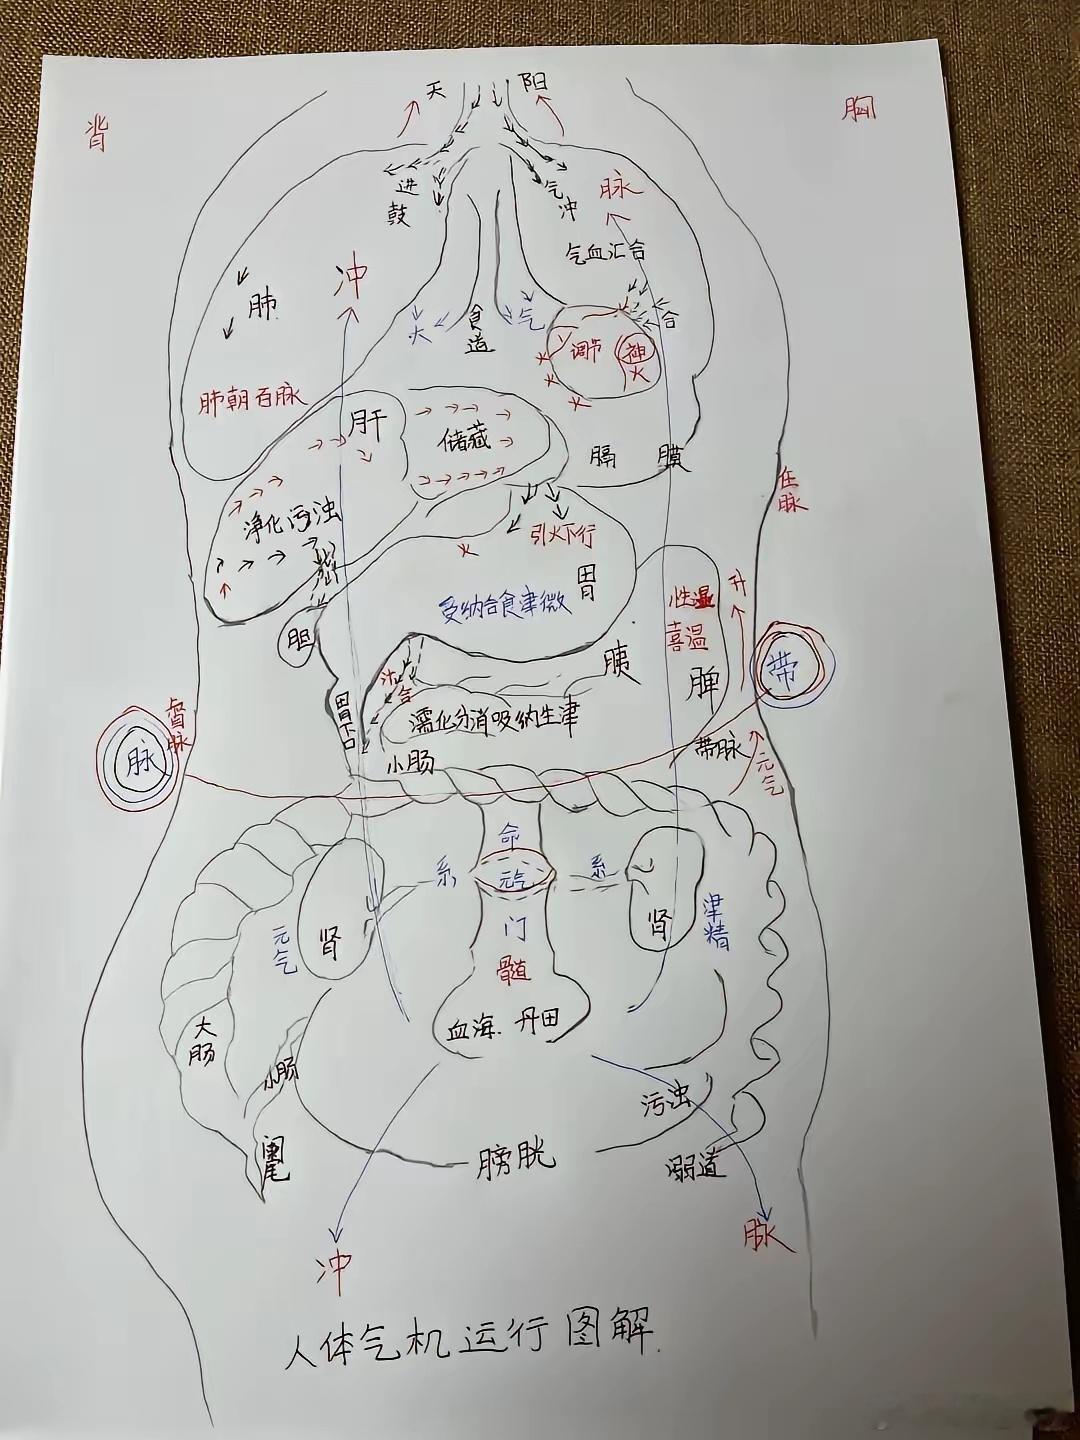 天 阳
背
胸
进鼓
气冲
脉
气血汇合
冲
肺
火
食道
气
合
调节
神
火
肺朝百脉
肝
储藏
膈膜
任脉
净化污浊
引火下行
胃
受纳合食津微
性温
喜温
升
胆
胰
脾
带
汁合
胃下口
濡化分消吸纳生津
小肠
督脉
脉
带脉
元气
命
系
元气
系
门
元气
肾
肾
津精
髓
血海.丹田
大肠
小肠
污浊
阑尾
膀胱
溺道
冲
脉
人体气机运行图解.